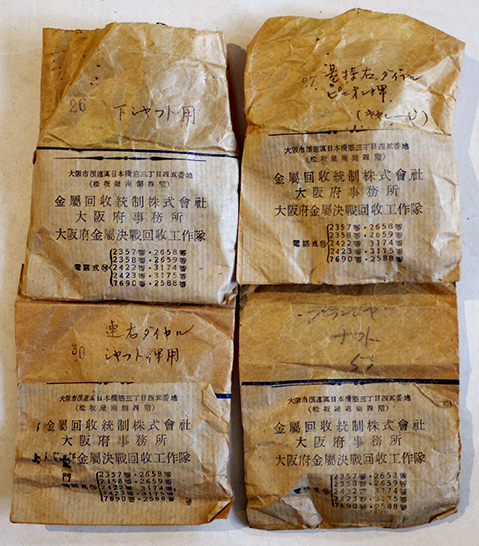 26
下シャフト用
大阪市浪速區日本橋筋三丁目四五番地
(松坂屋南側四階)
金屬回收統制株式會社
大阪府事務所
大阪府金屬決戰回收工作隊
電話戎
2357番・2658番
2358番・2659番
2422番 3174番
2423番・3175番
7690番・2588番
27
右ダイヤル
ピニオン押
大阪市浪速區日本橋筋三丁目四五番地
(松坂屋南側四階)
金屬回收統制株式會社
大阪府事務所
大阪府金屬決戰回收工作隊
電話戎
2357番・2658番
2358番・2659番
2422番 3174番
2423番・3175番
7690番・2588番
30
連右ダイヤル
シャフト押用
大阪市浪速區日本橋筋三丁目四五番地
(松坂屋南側四階)
金屬回收統制株式會社
大阪府事務所
金屬決戰回收工作隊
2357番・2658番
2358番・2659番
2422番 3174番
2423番・3175番
7690番・2588番
プランジャー
ナット
大阪市浪速區日本橋筋三丁目四五番地
(松坂屋南側四階)
金屬回收統制株式會社
大阪府事務所
大阪府金屬決戰回收工作隊
電話戎
2357番・2658番
2358番・2659番
2422番 3174番
2423番・3175番
7690番・2588番